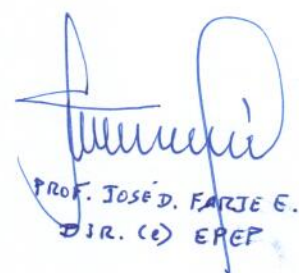 PROF. JOSÉ D. FARJE E.
DIR. (e) EPEP